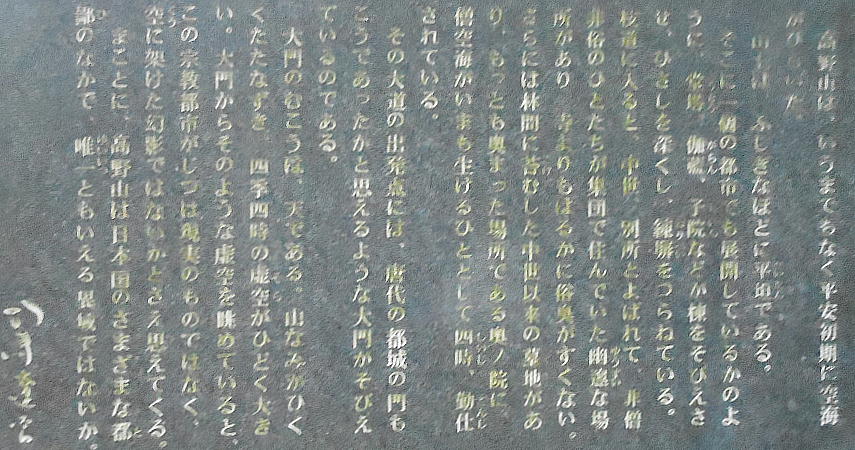 高野山は、いうまでもなく平安初期に空海
がひらいた。
山上は、ふしぎなほどに平坦である。
そこに一個の都市でも展開しているかのよ
うに、堂塔、伽藍、子院などが棟をそびえさ
せ、ひさしを深くし、練塀をつらねている。
枝道に入ると、中世、別所とよばれて、非僧
非俗のひとたちが集団で住んでいた幽邃な場
所があり、寺よりもはるかに俗臭がすくない。
さらには林間に苔むした中世以来の墓地があ
り、もっとも奥まった場所である奥ノ院に、
僧空海がいまも生けるひととして四時、勤仕
されている。
その大道の出発点には、唐代の都城の門も
こうであったかと思えるような大門がそびえ
ているのである。
大門のむこうは、天である。山なみがひく
くたたなずき、四季四時の虚空がひどく大き
い。大門からそのような虚空を眺めていると、
この宗教都市がじつは現実のものではなく、
空に架けた幻影ではないかとさえ思えてくる。
まことに、高野山は日本国のさまざまな都
鄙のなかで、唯一ともいえる異域ではないか。
司馬遼太郎